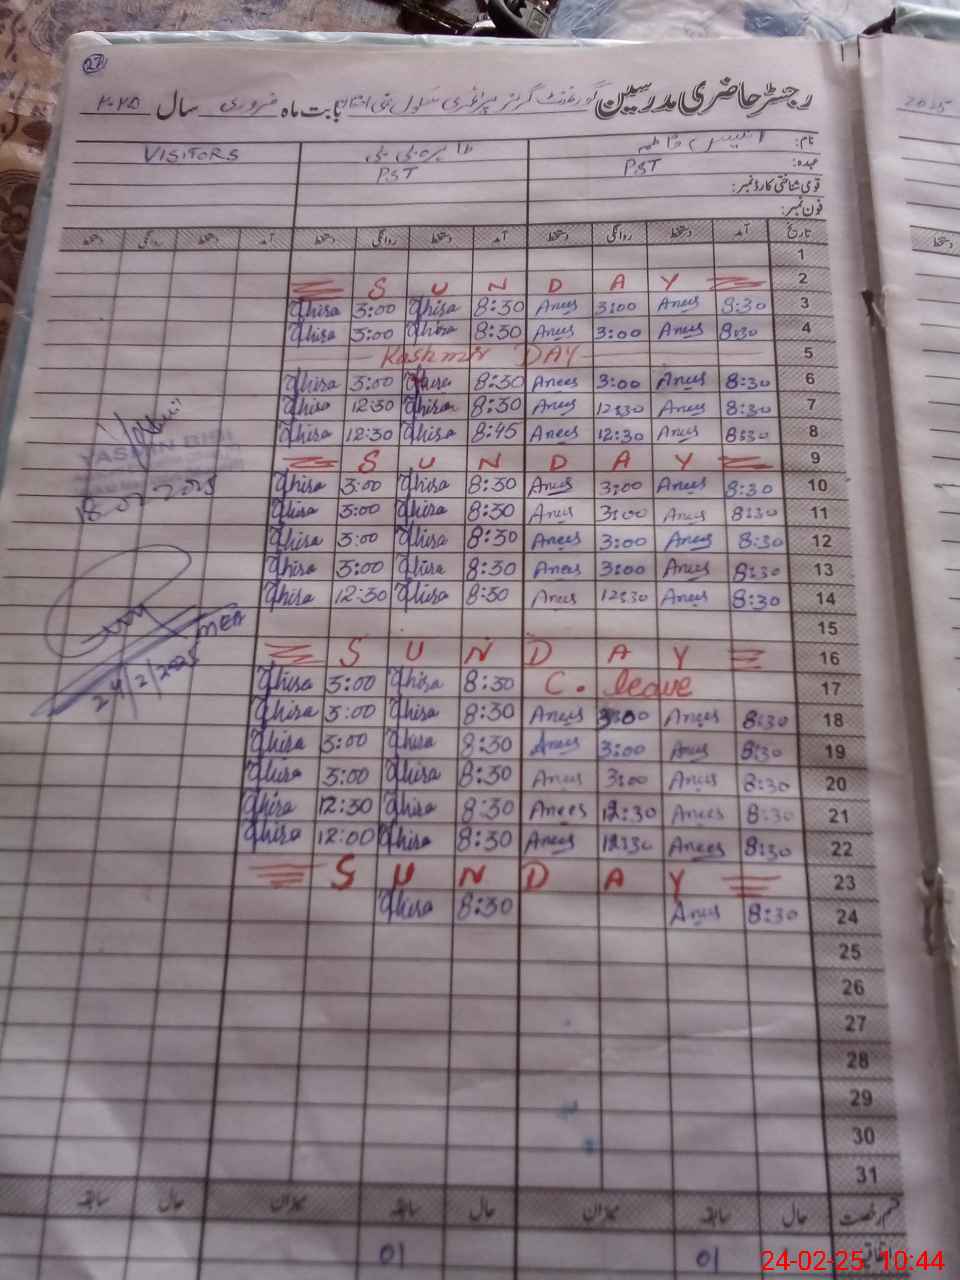 27
رجسٹر حاضری مدرسین گورنمنٹ گرلز پرائمری سکول بابت ماہ فروری سال ۲۰۲۵
2025
نام:
VISITORS
عہدہ: PST PST
قومی شناختی کارڈ نمبر:
فون نمبر:
تاریخ آمد دستخط روانگی دستخط آمد دستخط روانگی دستخط آمد دستخط روانگی دستخط
1
SUNDAY 2
Ghisa 3:00 Ghisa 8:30 Anees 3:00 Anees 8:30 3
Ghisa 3:00 Ghisa 8:30 Anees 3:00 Anees 8:30 4
Kashmir DAY 5
Ghisa 3:00 Ghisa 8:30 Anees 3:00 Anees 8:30 6
Ghisa 12:30 Ghisa 8:30 Anees 12:30 Anees 8:30 7
Ghisa 12:30 Ghisa 8:45 Anees 12:30 Anees 8:30 8
SUNDAY 9
Ghisa 3:00 Ghisa 8:30 Anees 3:00 Anees 8:30 10
Ghisa 3:00 Ghisa 8:30 Anees 3:00 Anees 8:30 11
Ghisa 3:00 Ghisa 8:30 Anees 3:00 Anees 8:30 12
Ghisa 3:00 Ghisa 8:30 Anees 3:00 Anees 8:30 13
Ghisa 12:30 Ghisa 8:30 Anees 12:30 Anees 8:30 14
15
SUNDAY 16
Ghisa 3:00 Ghisa 8:30 C. leave 17
Ghisa 3:00 Ghisa 8:30 Anees 3:00 Anees 8:30 18
Ghisa 3:00 Ghisa 8:30 Anees 3:00 Anees 8:30 19
Ghisa 3:00 Ghisa 8:30 Anees 3:00 Anees 8:30 20
Ghisa 12:30 Ghisa 8:30 Anees 12:30 Anees 8:30 21
Ghisa 12:00 Ghisa 8:30 Anees 12:30 Anees 8:30 22
SUNDAY 23
Ghisa 8:30 Anees 8:30 24
25
26
27
28
29
30
31
YASMIN BIBI
18-02-2025
MEA
24/2/2025
قسم رخصت حال سابقہ میزان حال سابقہ میزان حال سابقہ
01 01
24-02-25 10:44